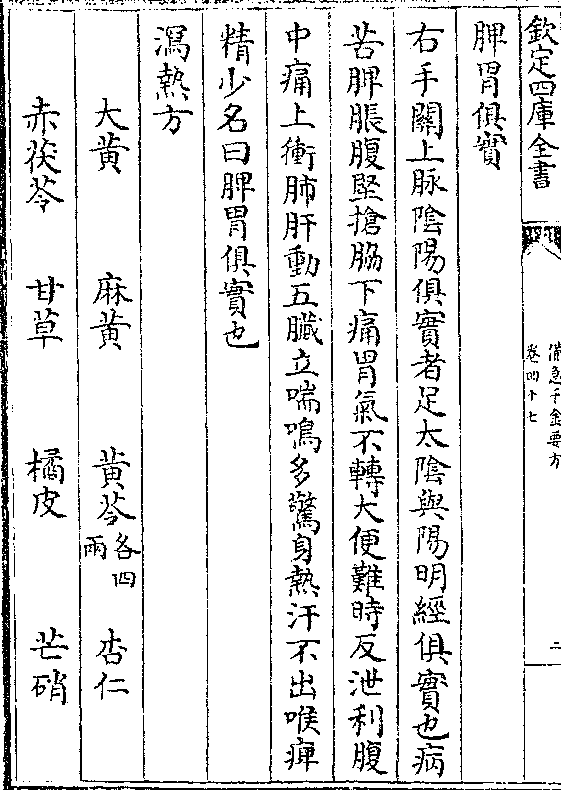 欽定四庫全書
備急千金要方
卷四十七
二
脾胃俱實
右手關上脉陰陽俱實者足太陰與陽明經俱實也病
苦脾脹腹堅搶脇下痛胃氣不轉大便難時反泄利腹
中痛上衝肺肝動五臟立喘鳴多驚身熱汗不出喉痺
精少名曰脾胃俱實也
瀉熱方
大黄 麻黄 黄芩各四兩 杏仁
赤茯苓 甘草 橘皮 芒硝